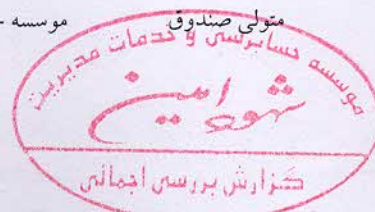 متولی صندوق موسسه -
موسسه حسابرسی و خدمات مدیریت
شهود امین
گزارش بررسی اجمالی